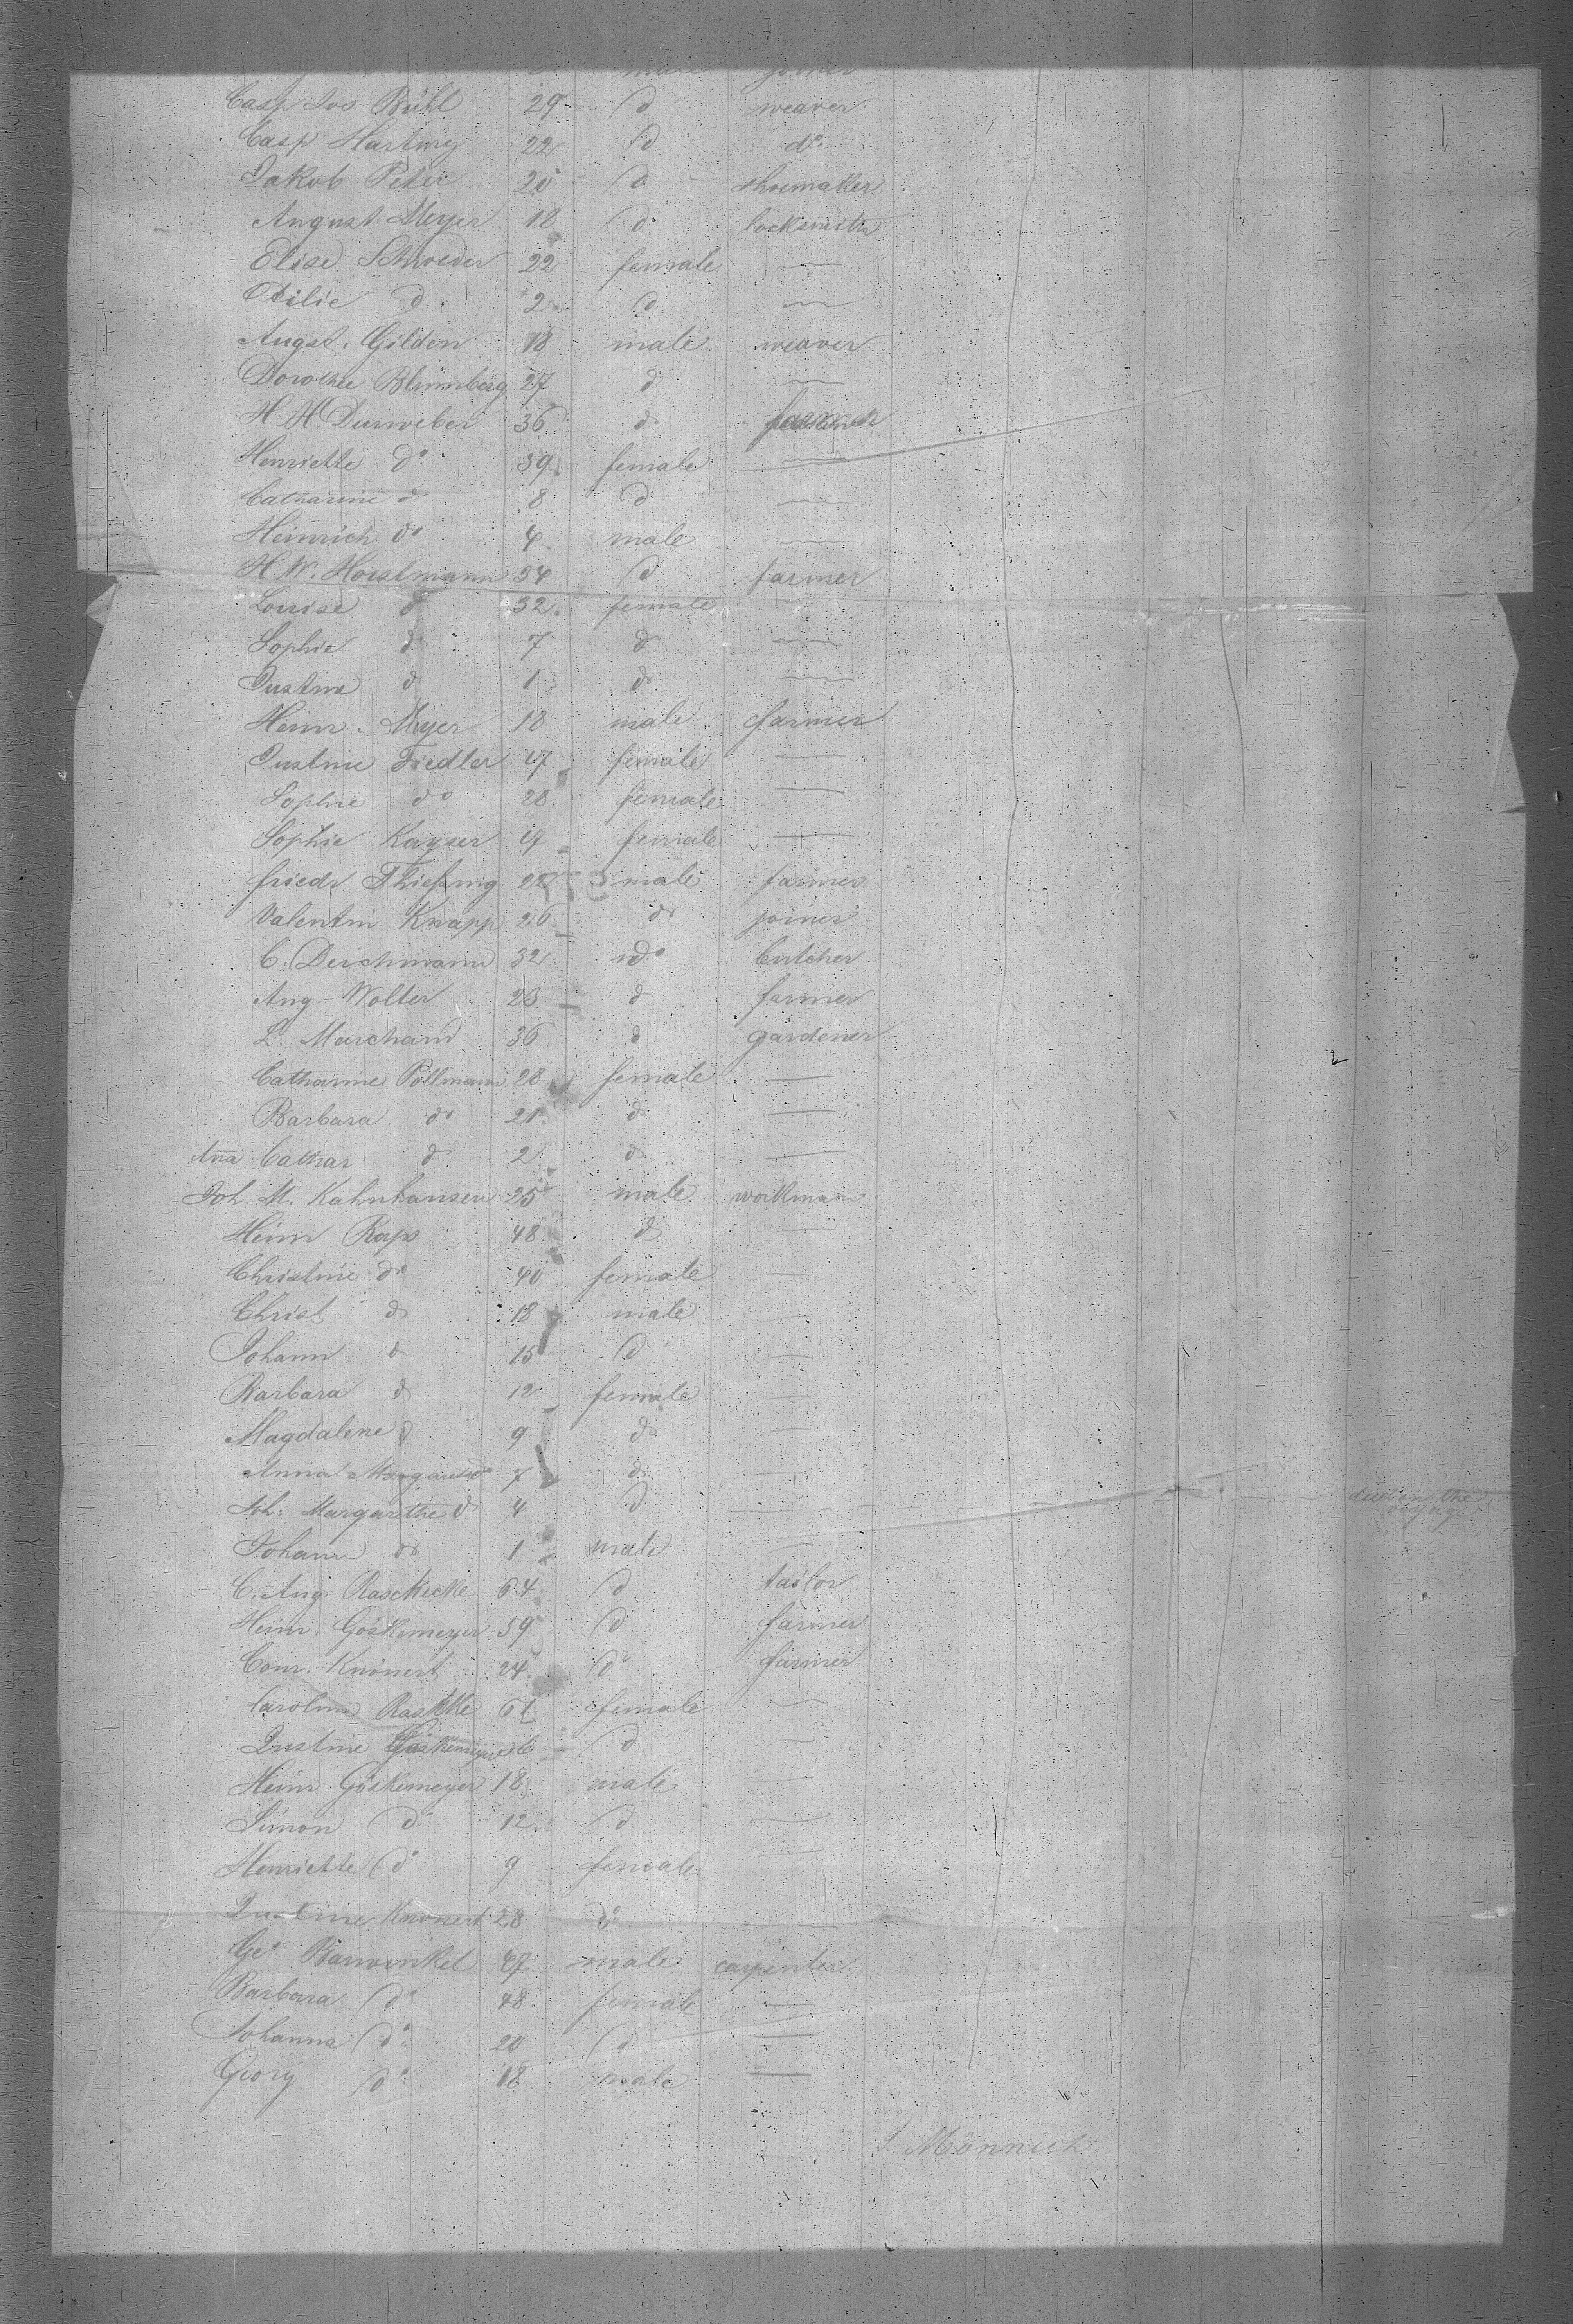 male joiner
Casp Ivo Rühl 29 d weaver
Casp Hartwig 22 d do
Jakob Peter 20 d shoemaker
August Meyer 18 d locksmith
Elise Schroeder 22 female —
Otilie d 2 d —
Augst. Gilden 18 male weaver
Dorothee Blumberg 27 d —
H. H. Durweber 36 d farmer
Henriette do 39 female —
Catharine d 8 d —
Heinrich do 4 male —
H. W. Horstmann 34 d farmer
Louise d 32 female
Sophie d 7 d —
Justine d 1 d —
Heinr. Meyer 18 male farmer
Justine Fiedler 17 female —
Sophie do 28 female —
Sophie Kayser 19 female —
friedr Thießing 28 male farmer
Valentin Knapp 26 do joiner
C. Deichmann 32 do butcher
Aug. Wolter 23 d farmer
L. Marchand 36 d gardener
Catharine Pöllmann 28 female —
Barbara do 21 d —
Anna Cathar d 2 d —
Joh. M. Kahnhausen 25 male workman
Heinr Raps 48 d —
Christine do 40 female —
Christ d 18 male —
Johann d 15 d —
Barbara d 12 female —
Magdalene d 9 do —
Anna Margareth do 7 d —
Joh: Margarethe d 4 d — died on the
voyage
Johann do 1 male —
C. Aug. Raschkecke 64 d tailor
Heinr. Göskemeyer 59 d farmer
Conr. Knönert 24 do farmer
Caroline 61 female —
Justine Göskemeyer 56 d —
Heinr Göskemeyer 18 male —
Simon d 12 d —
Henriette do 9 female —
Justine Knönert 28 do —
Geo Barwinkel 47 male carpenter
Barbara do 48 female —
Johanna do 20 d —
Georg do 18 male —
J. Mönnich